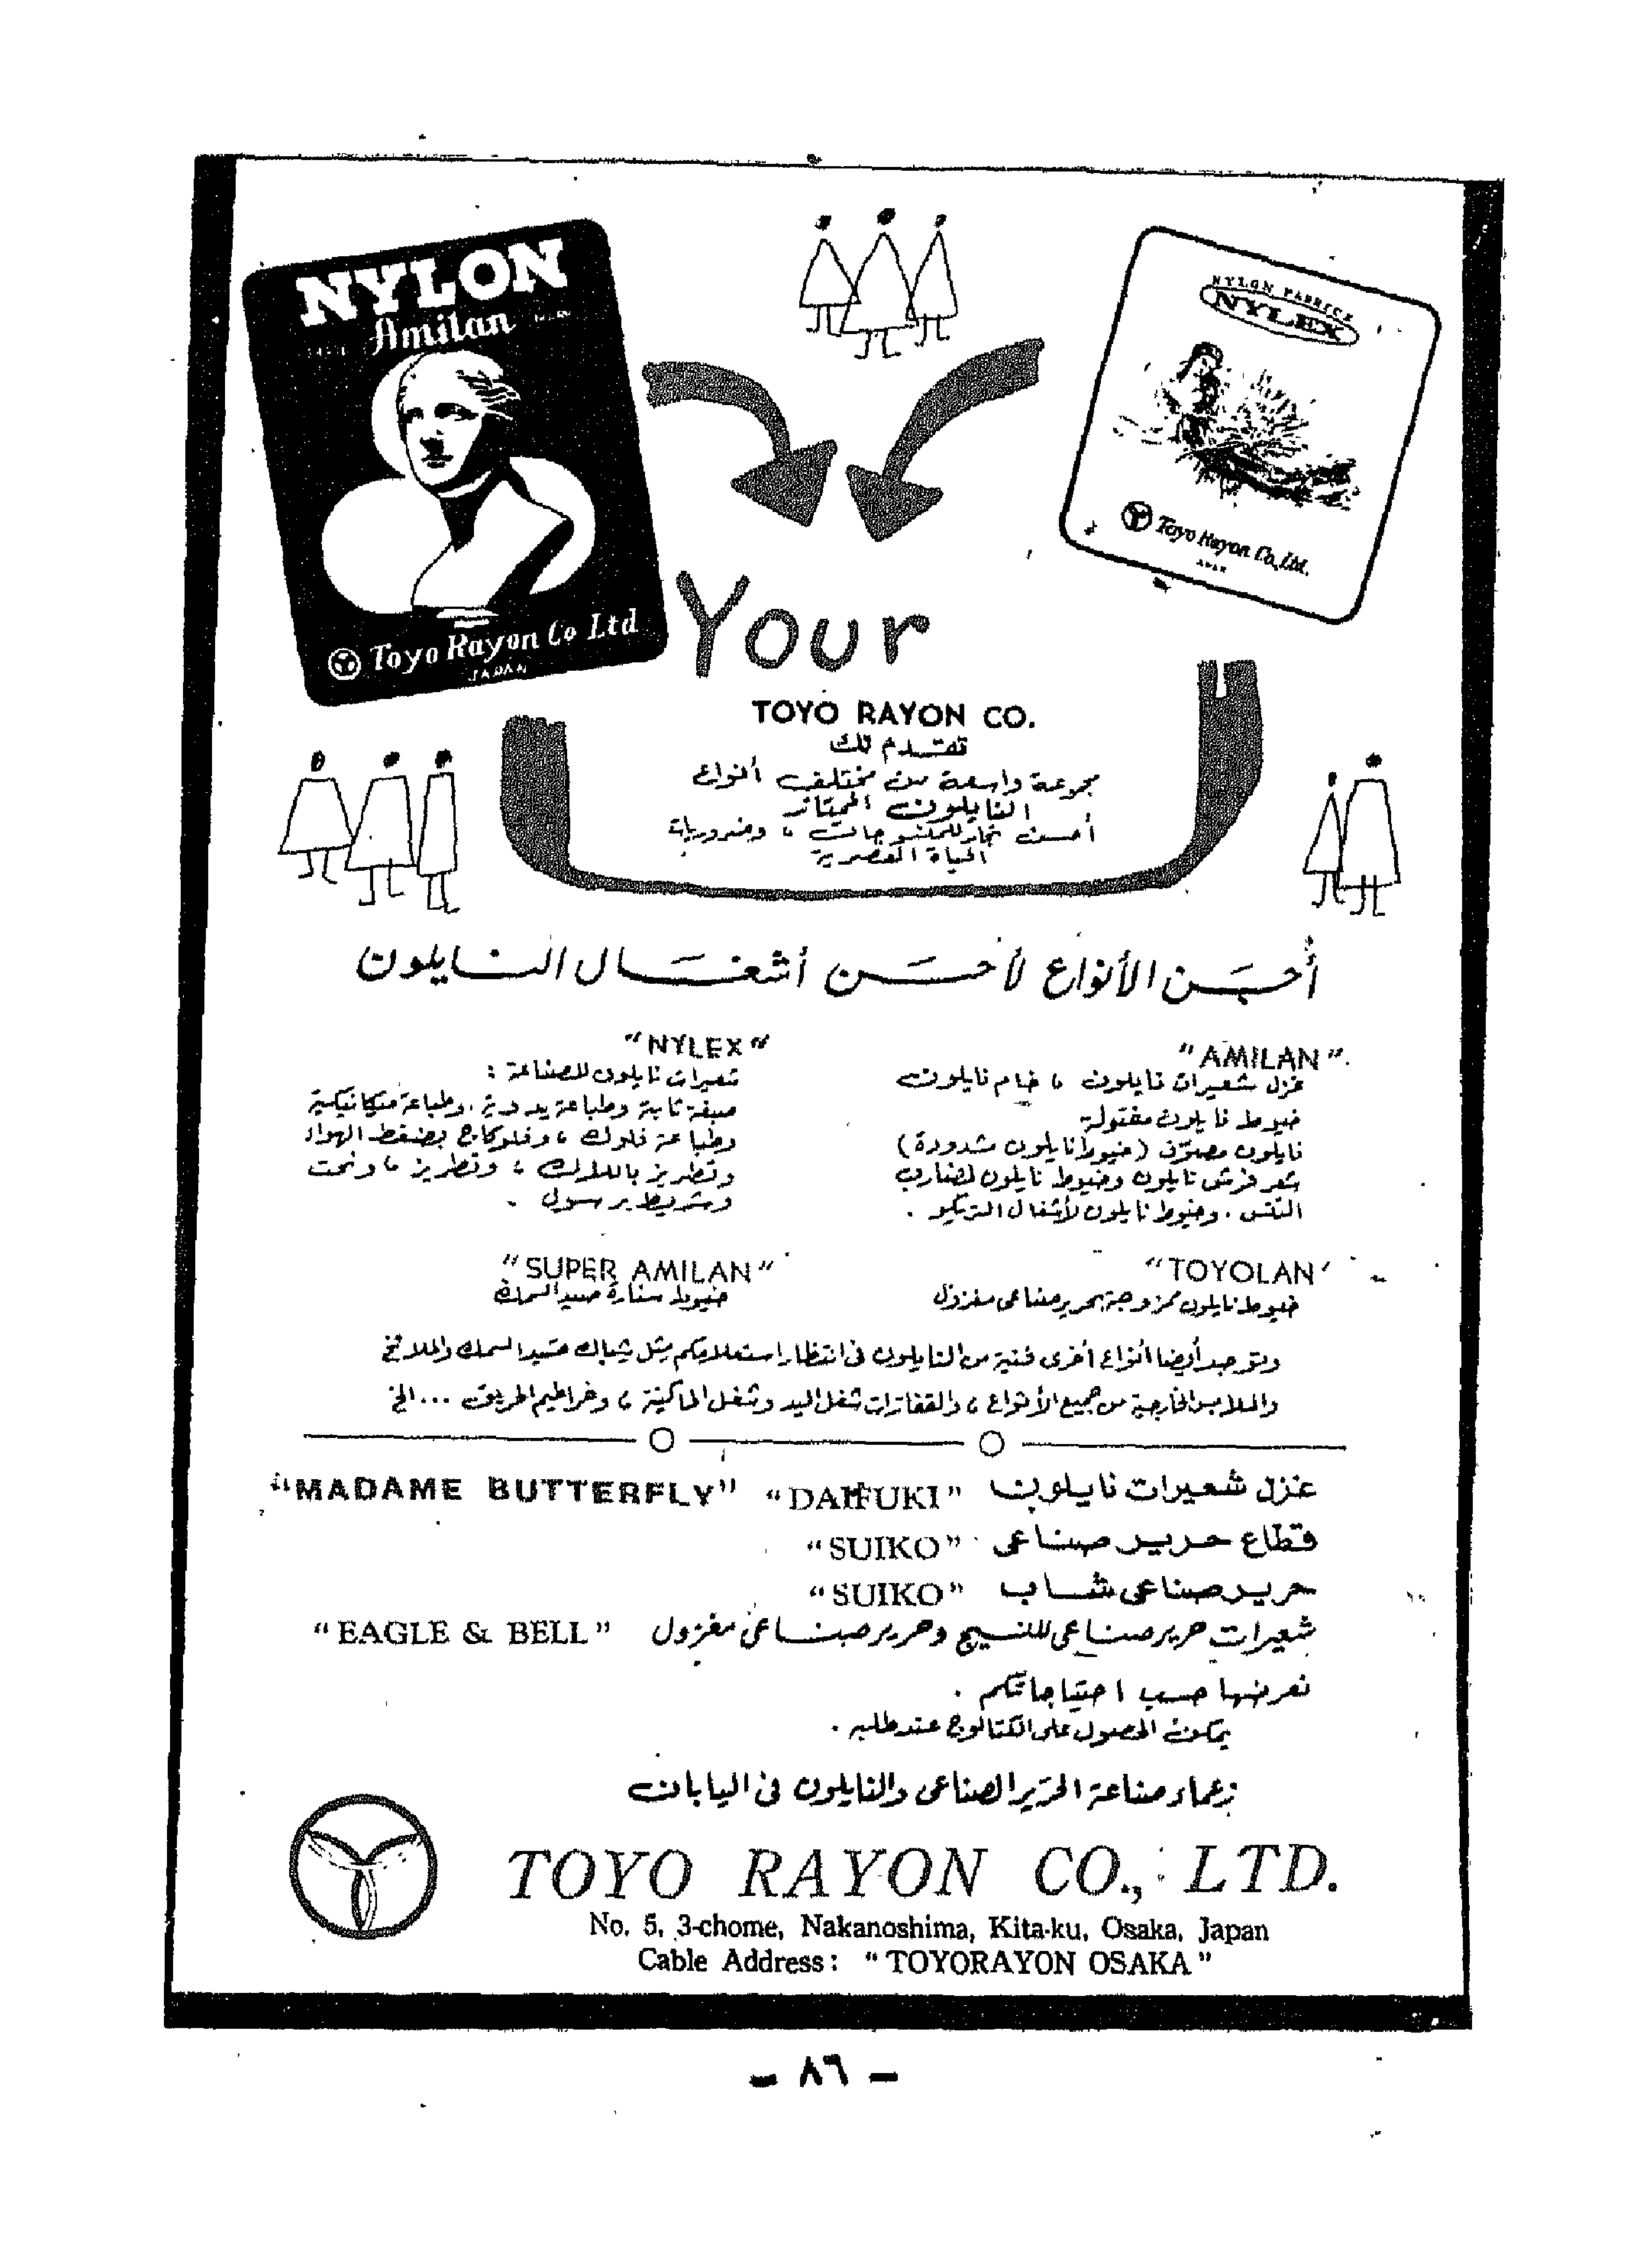 NYLON
Amilan
Toyo Rayon Co Ltd
JAPAN
NYLON FABRICS
NYLEX
Toyo Rayon Co., Ltd.
JAPAN
Your
TOYO RAYON CO.
تقدم لك
مجموعة واسعة من مختلف أنواع
النايلون الممتاز
أحسن للمنسوجات، وضروريات
الحياة العصرية
أحسن الأنواع لأحسن أشغال النايلون
"AMILAN"
غزل شعيرات نايلون، خام نايلون
خيوط نايلون مفتولة
نايلون (خيوط نايلون مشدودة)
شعر فرش نايلون وخيوط نايلون لمضارب
التنس. وخيوط نايلون لأشغال التريكو.
"NYLEX"
شعيرات نايلون للصناعة:
صبغة ثابتة وطباعة يدوية، وطباعة ميكانيكية
وطباعة فلوك، وفلوكاج بضغط الهواء
وتطريز باللاك، وتطريز، ونحت
وشريط
"TOYOLAN"
خيوط نايلون ممزوجة بحرير صناعى مغزول
"SUPER AMILAN"
خيوط سنارة صيد السمك
وتوجد أيضا أنواع أخرى من النايلون فى انتظار استعلامكم مثل شباك صيد السمك
والملابس الخارجية من جميع الأنواع، والقفازات شغل اليد وشغل الماكينة، وخراطيم الحريق ...الخ
غزل شعيرات نايلون "DAIFUKI" "MADAME BUTTERFLY"
قطاع حرير صناعى "SUIKO"
حرير صناعى شاب "SUIKO"
شعيرات حرير صناعى للنسيج وحرير صناعى مغزول "EAGLE & BELL"
نعرضها حسب احتياجاتكم.
يمكن الحصول على الكتالوج عند طلبه.
زعماء صناعة الحرير الصناعى والنايلون فى اليابان
TOYO RAYON CO., LTD.
No. 5, 3-chome, Nakanoshima, Kita-ku, Osaka, Japan
Cable Address: "TOYORAYON OSAKA"
- ٨٦ -